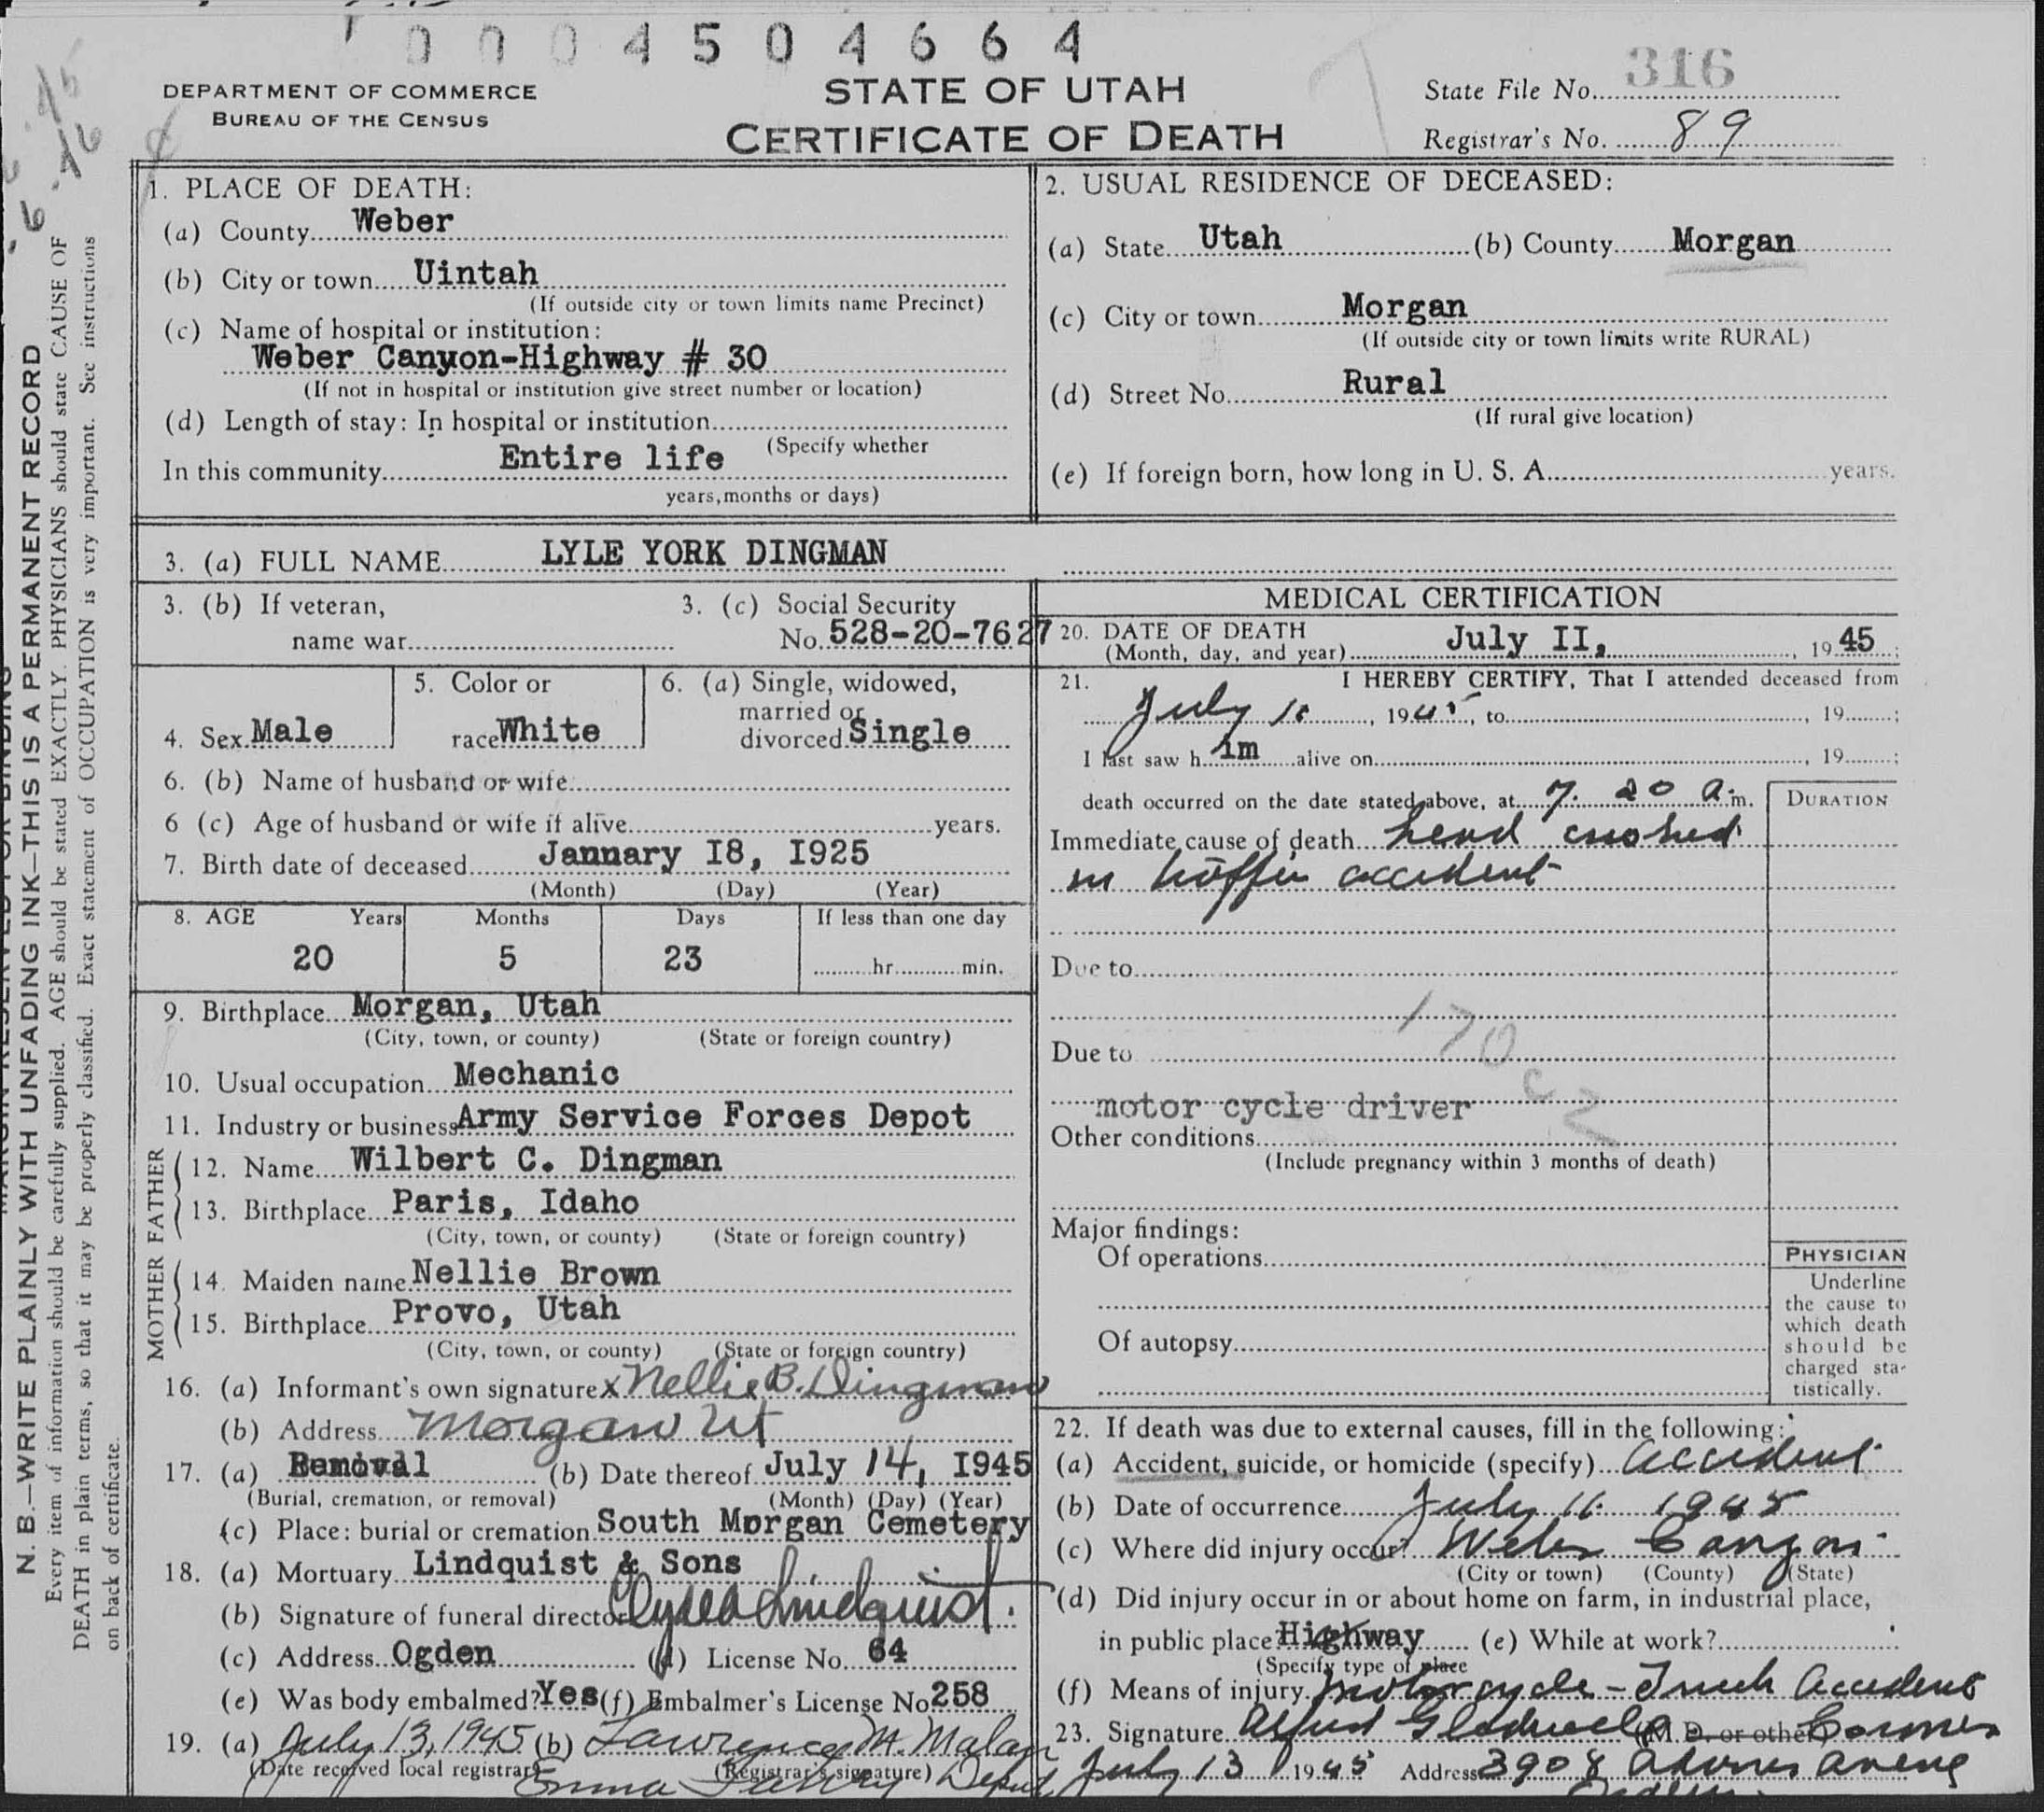 0004504664
DEPARTMENT OF COMMERCE
BUREAU OF THE CENSUS
STATE OF UTAH
CERTIFICATE OF DEATH
State File No. 316
Registrar's No. 89
N. B.—WRITE PLAINLY WITH UNFADING INK—THIS IS A PERMANENT RECORD
Every item of information should be carefully supplied. AGE should be stated EXACTLY. PHYSICIANS should state CAUSE OF
DEATH in plain terms, so that it may be properly classified. Exact statement of OCCUPATION is very important. See instructions
on back of certificate.
1. PLACE OF DEATH:
(a) County Weber
(b) City or town Uintah
(If outside city or town limits name Precinct)
(c) Name of hospital or institution:
Weber Canyon-Highway # 30
(If not in hospital or institution give street number or location)
(d) Length of stay: In hospital or institution
(Specify whether
In this community Entire life
years, months or days)
2. USUAL RESIDENCE OF DECEASED:
(a) State Utah (b) County Morgan
(c) City or town Morgan
(If outside city or town limits write RURAL)
(d) Street No. Rural
(If rural give location)
(e) If foreign born, how long in U. S. A. years.
3. (a) FULL NAME LYLE YORK DINGMAN
3. (b) If veteran,
name war
3. (c) Social Security
No. 528-20-7627
4. Sex Male
5. Color or
race White
6. (a) Single, widowed,
married or
divorced Single
6. (b) Name of husband or wife
6 (c) Age of husband or wife if alive years.
7. Birth date of deceased Jannary I8, I925
(Month) (Day) (Year)
8. AGE Years Months Days If less than one day
20 5 23 hr. min.
9. Birthplace Morgan, Utah
(City, town, or county) (State or foreign country)
10. Usual occupation Mechanic
11. Industry or business Army Service Forces Depot
FATHER
12. Name Wilbert C. Dingman
13. Birthplace Paris, Idaho
(City, town, or county) (State or foreign country)
MOTHER
14. Maiden name Nellie Brown
15. Birthplace Provo, Utah
(City, town, or county) (State or foreign country)
16. (a) Informant's own signature x Nellie B. Dingman
(b) Address Morgan Ut
17. (a) Removal (b) Date thereof July 14, I945
(Burial, cremation, or removal) (Month) (Day) (Year)
(c) Place: burial or cremation South Morgan Cemetery
18. (a) Mortuary Lindquist & Sons
(b) Signature of funeral director Lindquist.
(c) Address Ogden (d) License No. 64
(e) Was body embalmed? Yes (f) Embalmer's License No. 258
19. (a) July 13, 1945 (b) Lawrence M. Malan
(Date received local registrar) (Registrar's signature)
Emma
MEDICAL CERTIFICATION
20. DATE OF DEATH
(Month, day, and year) July II, 19 45;
21. I HEREBY CERTIFY, That I attended deceased from
July 1945, to 19 ;
I last saw h im alive on , 19 ;
death occurred on the date stated above, at 7. 20 a. m.
DURATION
Immediate cause of death head crushed
in traffic accident
Due to
Due to
170 c 2
motor cycle driver
Other conditions
(Include pregnancy within 3 months of death)
Major findings:
Of operations
Of autopsy
PHYSICIAN
Underline
the cause to
which death
should be
charged sta-
tistically.
22. If death was due to external causes, fill in the following:
(a) Accident, suicide, or homicide (specify) accident
(b) Date of occurrence July 11 1945
(c) Where did injury occur? Weber Canyon
(City or town) (County) (State)
(d) Did injury occur in or about home on farm, in industrial place,
in public place? Highway (e) While at work?
(Specify type of place
(f) Means of injury Motorcycle - Truck Accident
23. Signature Gladwell (M. D. or other) Coroner
July 13 1945 Address 3908 Adams Avenue